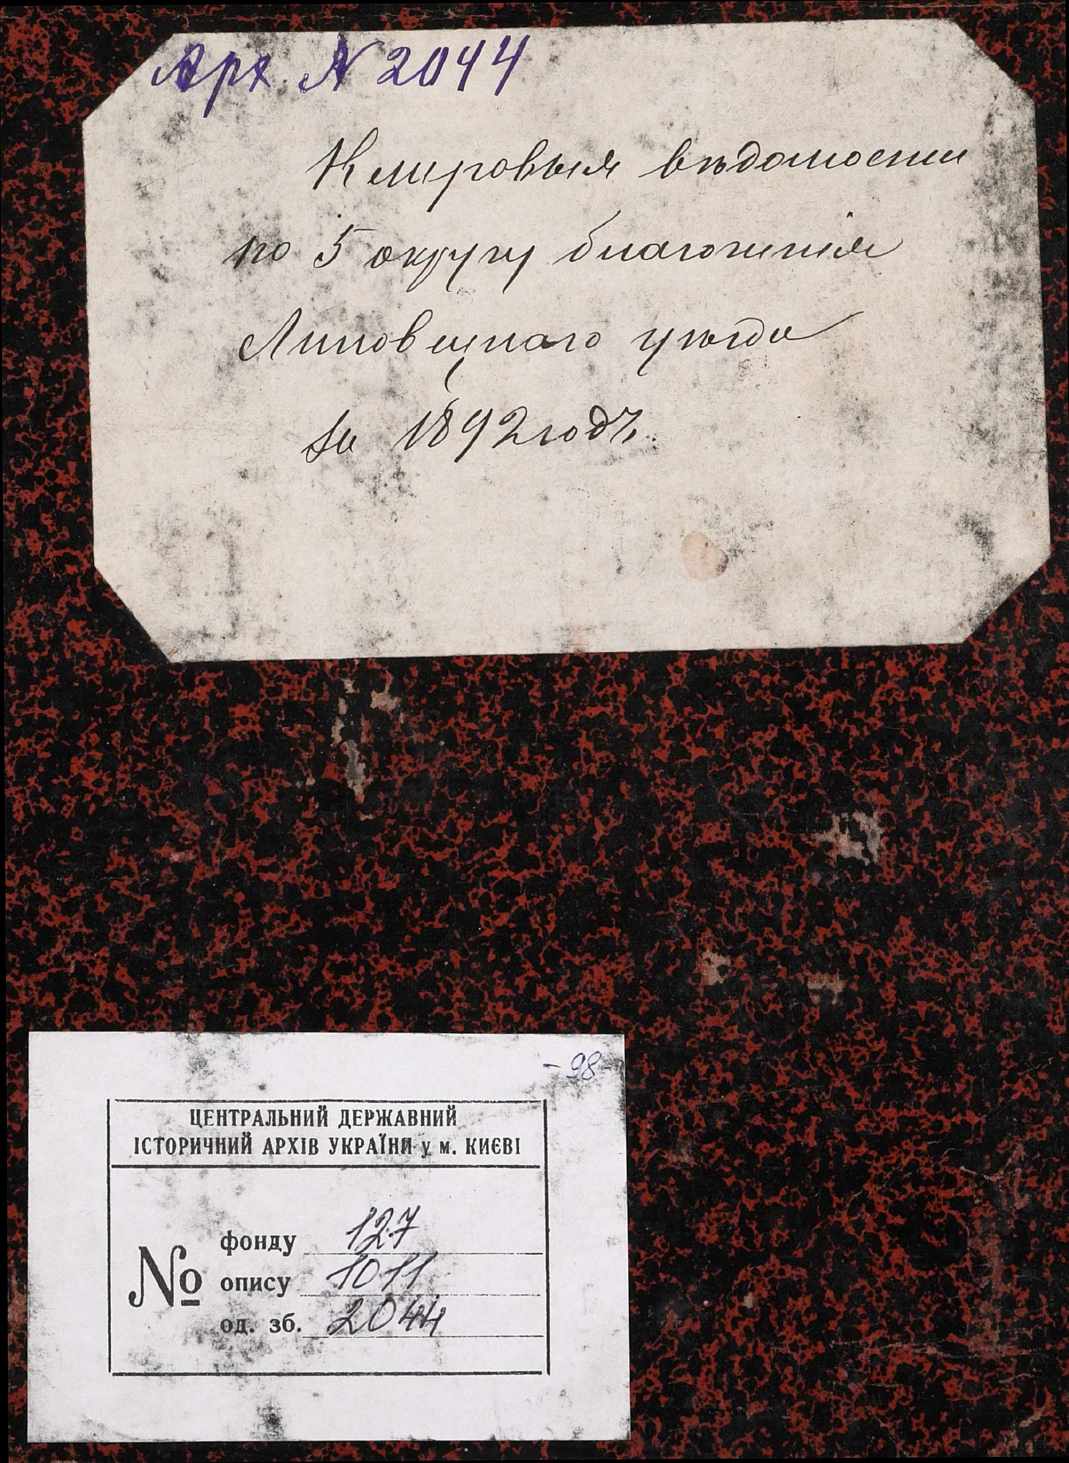 Арх. № 2044
Клировыя вѣдомости
по 5 округу благочинія
Липовецкаго уѣзда
за 1892 годъ.
- 98 -
ЦЕНТРАЛЬНИЙ ДЕРЖАВНИЙ
ІСТОРИЧНИЙ АРХІВ УКРАЇНИ у м. КИЄВІ
№
фонду 127
опису 1011
од. зб. 2044